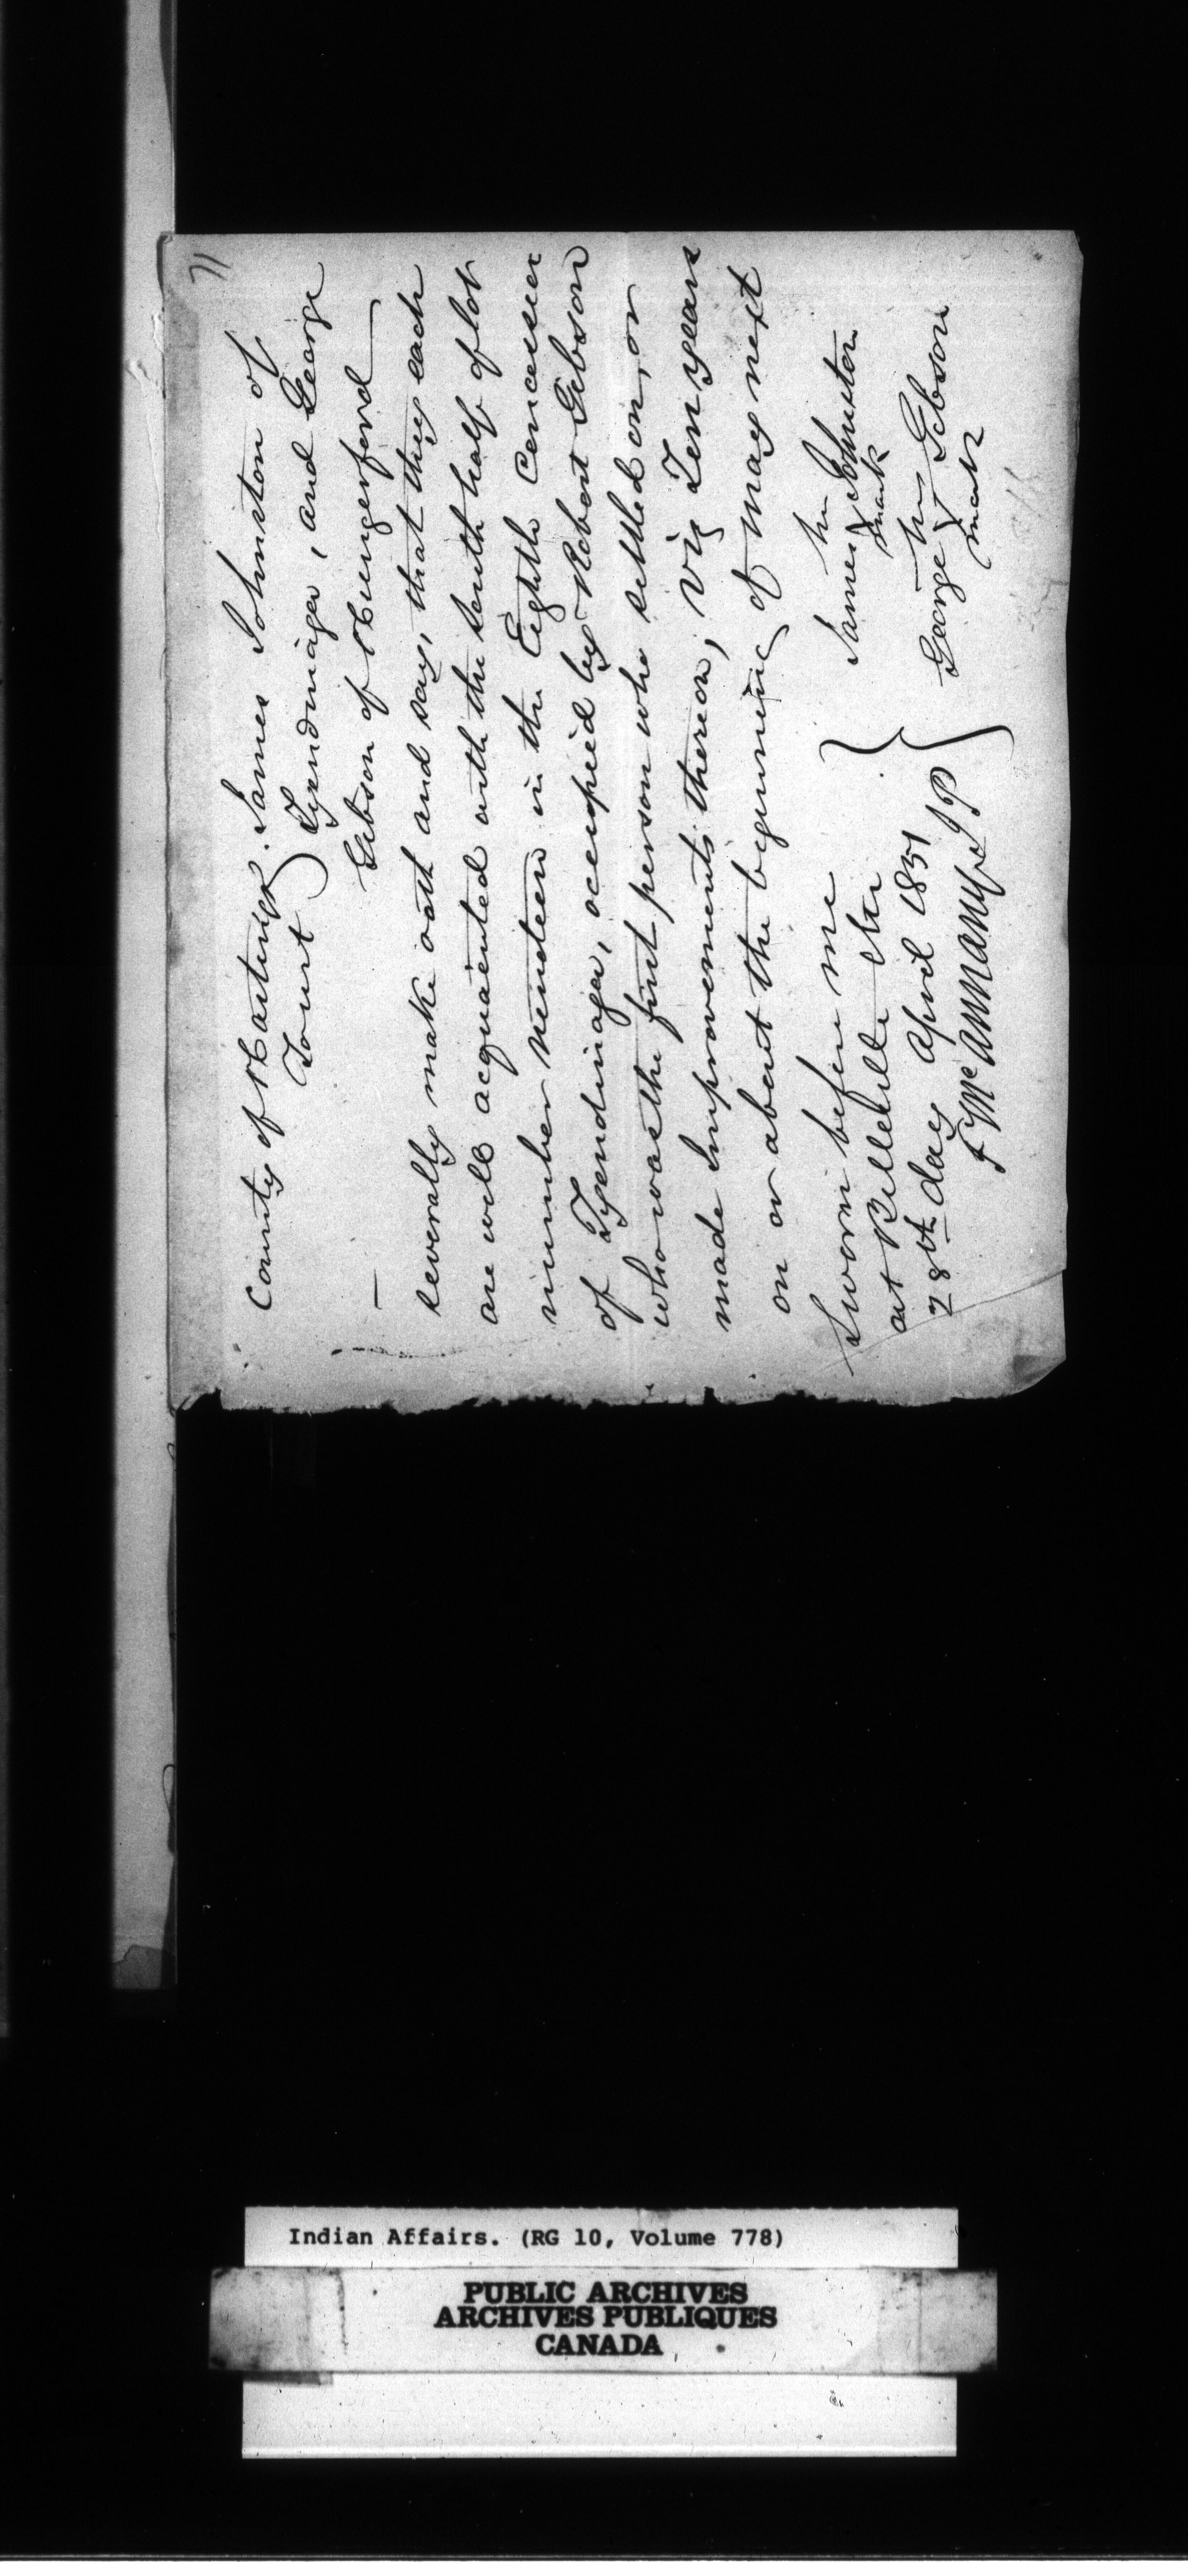 71
County of Hastings James Johnston of
To wit } Tyendinaga, and George
Gibson of Hungerford
severally make oath and say, that they each
are well acquainted with the South half of lot
number Nineteen in the Eighth Concession
of Tyendinaga, occupied by Robert Gibson
who was the first person who settled on, or
made Improvements thereon, Viz Ten years
on or about the begining of May next
Sworn before me
at Belleville the
28th day April 1851
J McAnnany JP
his
James X Johnston
mark
his
George X Gibson
mark
Indian Affairs. (RG 10, Volume 778)
PUBLIC ARCHIVES
ARCHIVES PUBLIQUES
CANADA